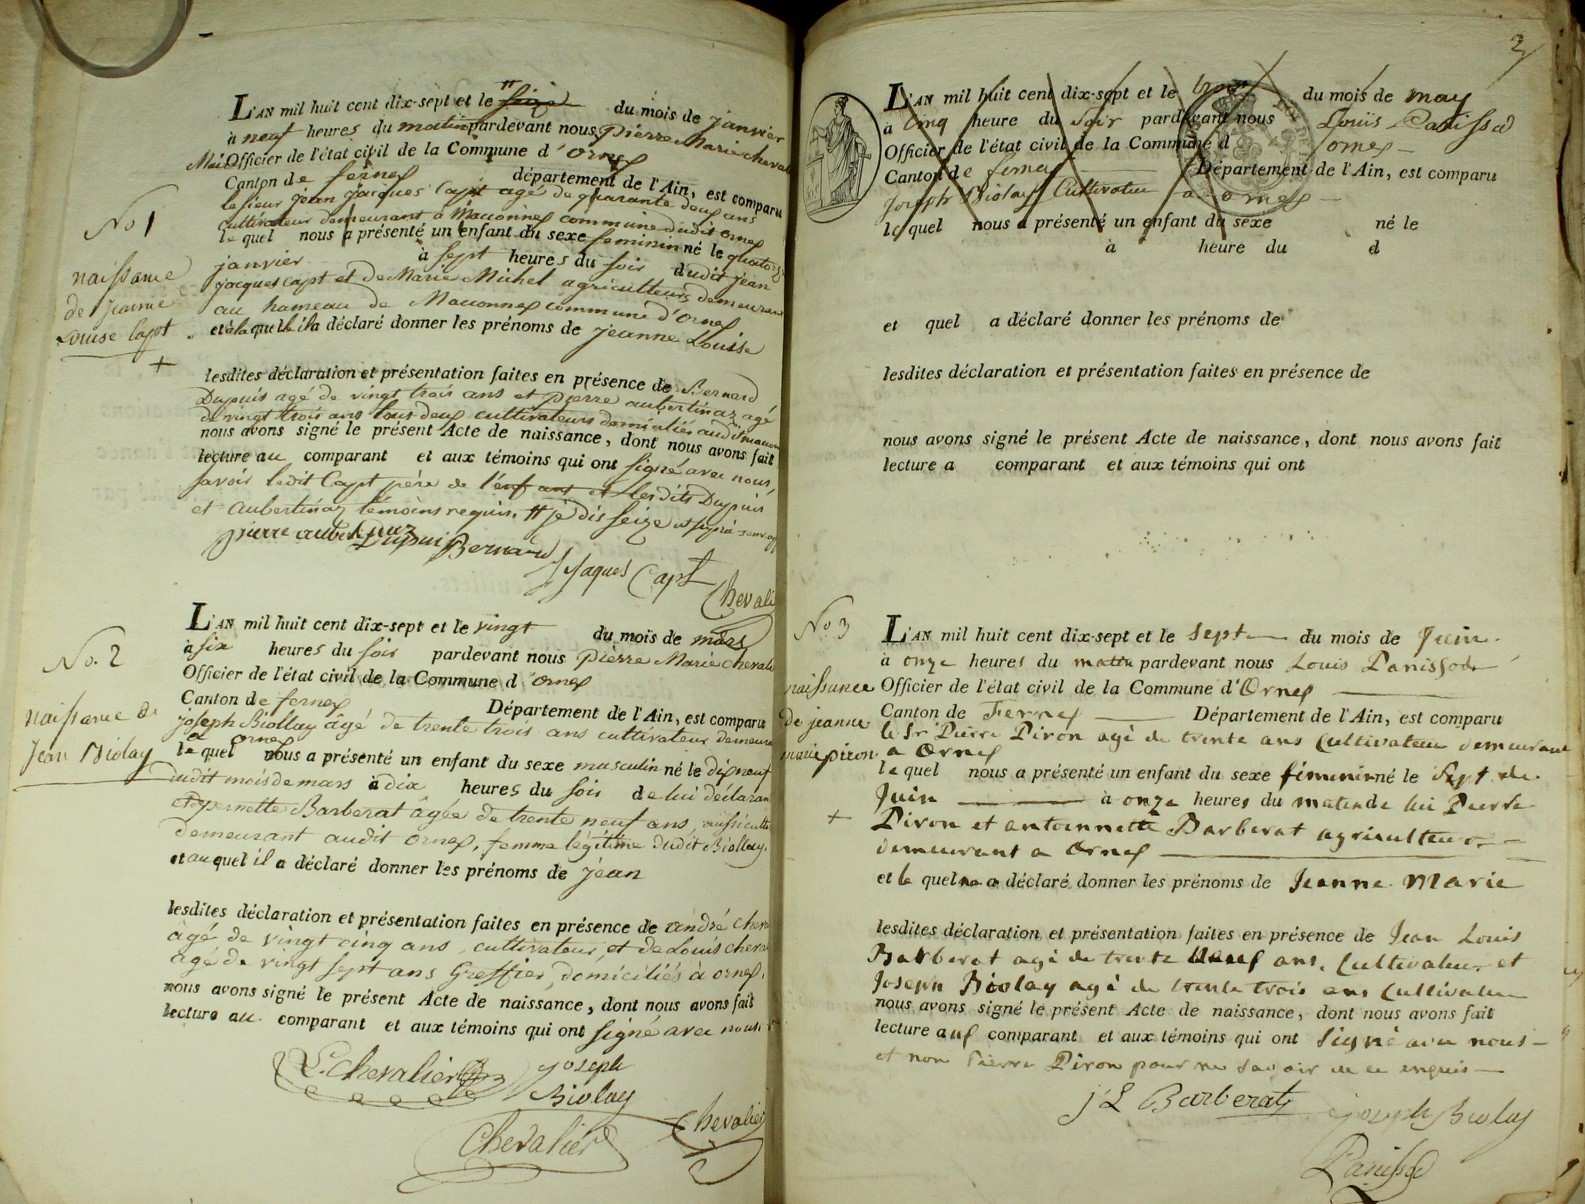 No 1
naissance
de jeanne
Louise Capt
+
L'AN mil huit cent dix-sept et le # seize du mois de janvier
à neuf heures du matin pardevant nous pierre Marie cheval
Officier de l'état civil de la Commune d'ornex
Canton de fernex département de l'Ain, est comparu
le sieur jean jacques Capt agé de quarante deux ans
cultivateur demeurant à Maconnex commune dudit ornex
le quel nous a présenté un enfant du sexe feminin né le quatorze
janvier à sept heures du soir dudit jean
jacques capt et de Marie Michel agriculteurs demeurans
au hameau de Maconnex commune d'ornex
et à la quelle il a déclaré donner les prénoms de jeanne Louise
lesdites déclaration et présentation faites en présence de Bernard
Dupuis agé de vingt trois ans et pierre aubertinaz agé
de vingt trois ans tous deux cultivateurs domiciliés audit macon
nous avons signé le présent Acte de naissance, dont nous avons fait
lecture au comparant et aux témoins qui ont signé avec nous,
savoir ledit Capt père de l'enfant et lesdits Dupuis
et aubertinaz témoins requis. # je dis seize
pierre aubertinaz
Dupuis Bernard
J Jaques Capt
Chevali
No. 2
naissance de
Jean Biolay
L'AN mil huit cent dix-sept et le vingt du mois de mars
à six heures du soir pardevant nous pierre Marie chevali
Officier de l'état civil de la Commune d'ornex
Canton de fernex Département de l'Ain, est comparu
joseph Biollay âgé de trente trois ans cultivateur demeura
à ornex
le quel nous a présenté un enfant du sexe masculin né le dixneuf
dudit mois de mars à dix heures du soir de lui déclaran
et pernette Barberat âgée de trente neuf ans,
demeurant audit ornex, femme légitime dudit Biollay.
et auquel il a déclaré donner les prénoms de jean
lesdites déclaration et présentation faites en présence de andré cheva
agé de vingt cinq ans, cultivateur, et de Louis cheva
agé de vingt sept ans Greffier, domiciliés à ornex,
nous avons signé le présent Acte de naissance, dont nous avons fait
lecture au comparant et aux témoins qui ont signé avec nous
L. Chevalier
joseph
Biolay
Chevalier
Chevalier
L'AN mil huit cent dix-sept et le du mois de may
à cinq heure du soir pardevant nous Louis Panissod
Officier de l'état civil de la Commune d ornex
Canton de fernex Département de l'Ain, est comparu
joseph Biolay Cultivateur a ornex
le quel nous a présenté un enfant du sexe né le
à heure du d
et quel a déclaré donner les prénoms de
lesdites déclaration et présentation faites en présence de
nous avons signé le présent Acte de naissance, dont nous avons fait
lecture a comparant et aux témoins qui ont
No. 3
naissance
de jeanne
marie piron
+
L'AN mil huit cent dix-sept et le sept du mois de Juin.
à onze heures du matin pardevant nous Louis Panissod
Officier de l'état civil de la Commune d'Ornex
Canton de Fernex Département de l'Ain, est comparu
le Sr Pierre Piron agé de trente ans Cultivateur demeurant
a Ornex
le quel nous a présenté un enfant du sexe féminin né le Sept de
Juin à onze heures du matin de lui Pierre
Piron et antoinnette Barberat agriculteur
demeurant a Ornex
et le quel a déclaré donner les prénoms de Jeanne Marie
lesdites déclaration et présentation faites en présence de Jean Louis
Barberat agé de trente neuf ans. Cultivateur et
Joseph Biolay agé de trente trois ans Cultivateur
nous avons signé le présent Acte de naissance, dont nous avons fait
lecture aux comparant et aux témoins qui ont signé avec nous
et non Pierre Piron pour ne savoir de ce enquis
J L Barberat
joseph Biolay
Panissod